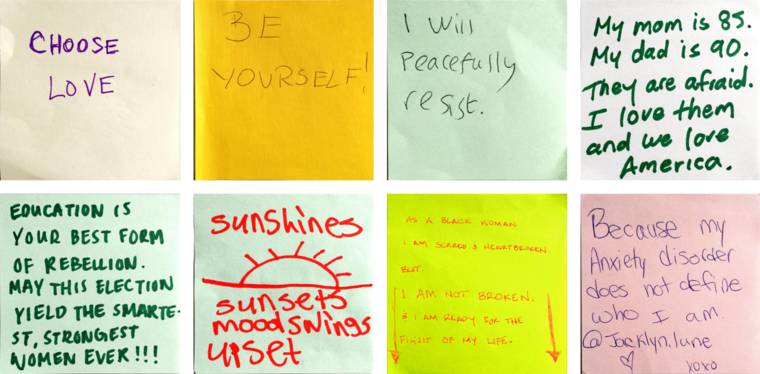 CHOOSE
LOVE
BE
YOURSELF!
I Will
Peacefully
resist.
My mom is 85.
My dad is 90.
They are afraid.
I love them
and we love
America.
EDUCATION IS
YOUR BEST FORM
OF REBELLION.
MAY THIS ELECTION
YIELD THE SMARTE-
ST, STRONGEST
WOMEN EVER!!!
sunshines
sunsets
moodswings
upset
AS A BLACK WOMAN
I AM SCARED & HEARTBROKEN
BUT.
I AM NOT BROKEN.
& I AM READY FOR THE
FIGHT OF MY LIFE.
Because my
Anxiety disorder
does not define
who I am
@Jacklyn.lune
xoxo